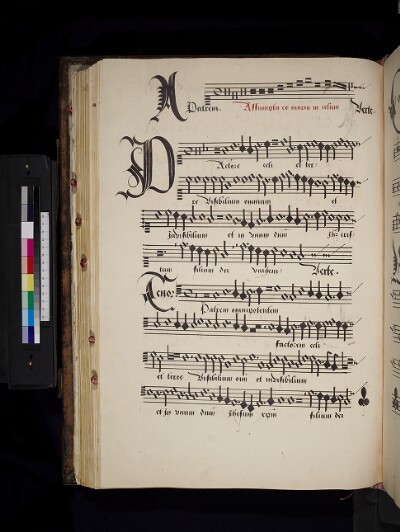 Patrem. Assumpta es maria in celum Verte.
Factore celi et ter
re Visibilium omnium et
Invisibilium et in vnum dnm
filium dei vnigeni Verte.
Tenor
Patrem omnipotentem
factorem celi
et terre Visibilium oim et invisibilium
et in vnum dnm Jhesum xpm filium dei